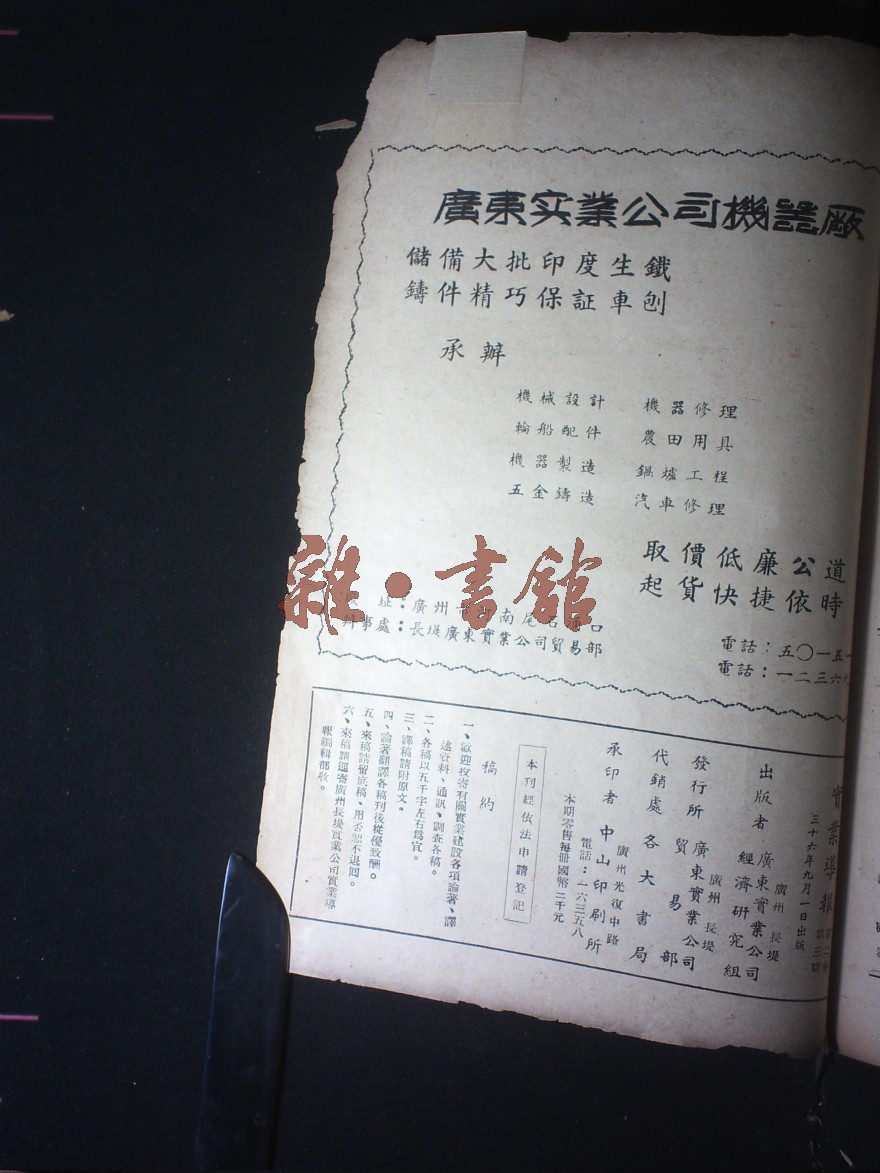 廣東实業公司機噐厰
儲備大批印度生鐵
鑄件精巧保証車刨
承辦
機械設計 機器修理
輪船配件 農田用具
機器製造 鍋爐工程
五金鑄造 汽車修理
取價低廉公道
起貨快捷依時
址：廣州 南尾 口
事處：長堤廣東實業公司貿易部
電話：五〇一五一
電話：一二三六
雜·書館
實業導報
三十六年九月一日出版
出版者 廣州長堤 廣東實業公司經濟研究組
發行所 廣州長堤 廣東實業公司貿易部
代銷處 各大書局
承印者 中山印刷所
廣州光復中路
電話：一六三五八
本期零售每冊國幣二千元
本刊經依法申請登記
稿約
一、歡迎投寄有關實業建設各項論著、譯
述資料、通訊、調查各稿。
二、各稿以五千字左右爲宜。
三、譯稿請附原文。
四、論著翻譯各稿刊後從優致酬。
五、來稿請留底稿、用否恕不退囘。
六、來稿請逕寄廣州長堤實業公司實業導
報編輯部收。